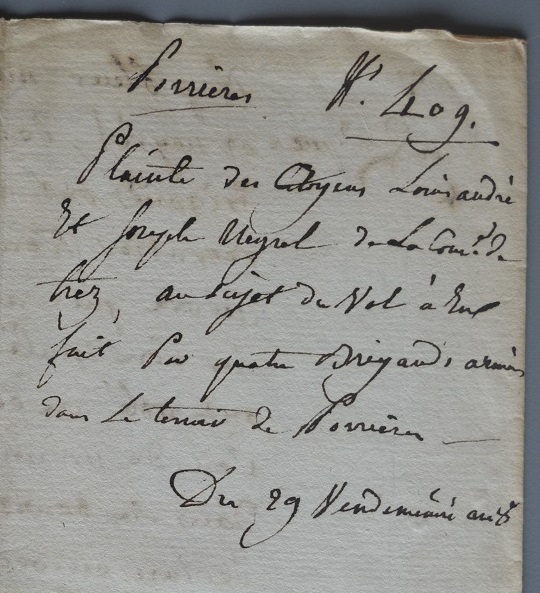 Porrières N°. 409.
Plainte des Citoyens Louis andré
Et Joseph Neyrel de La Com.e de
trez, au sujet du Vol à Eux
fait Par quatre Brigands armés
dans Le terroir de Porrières —
Du 29 Vendemiaire an 8